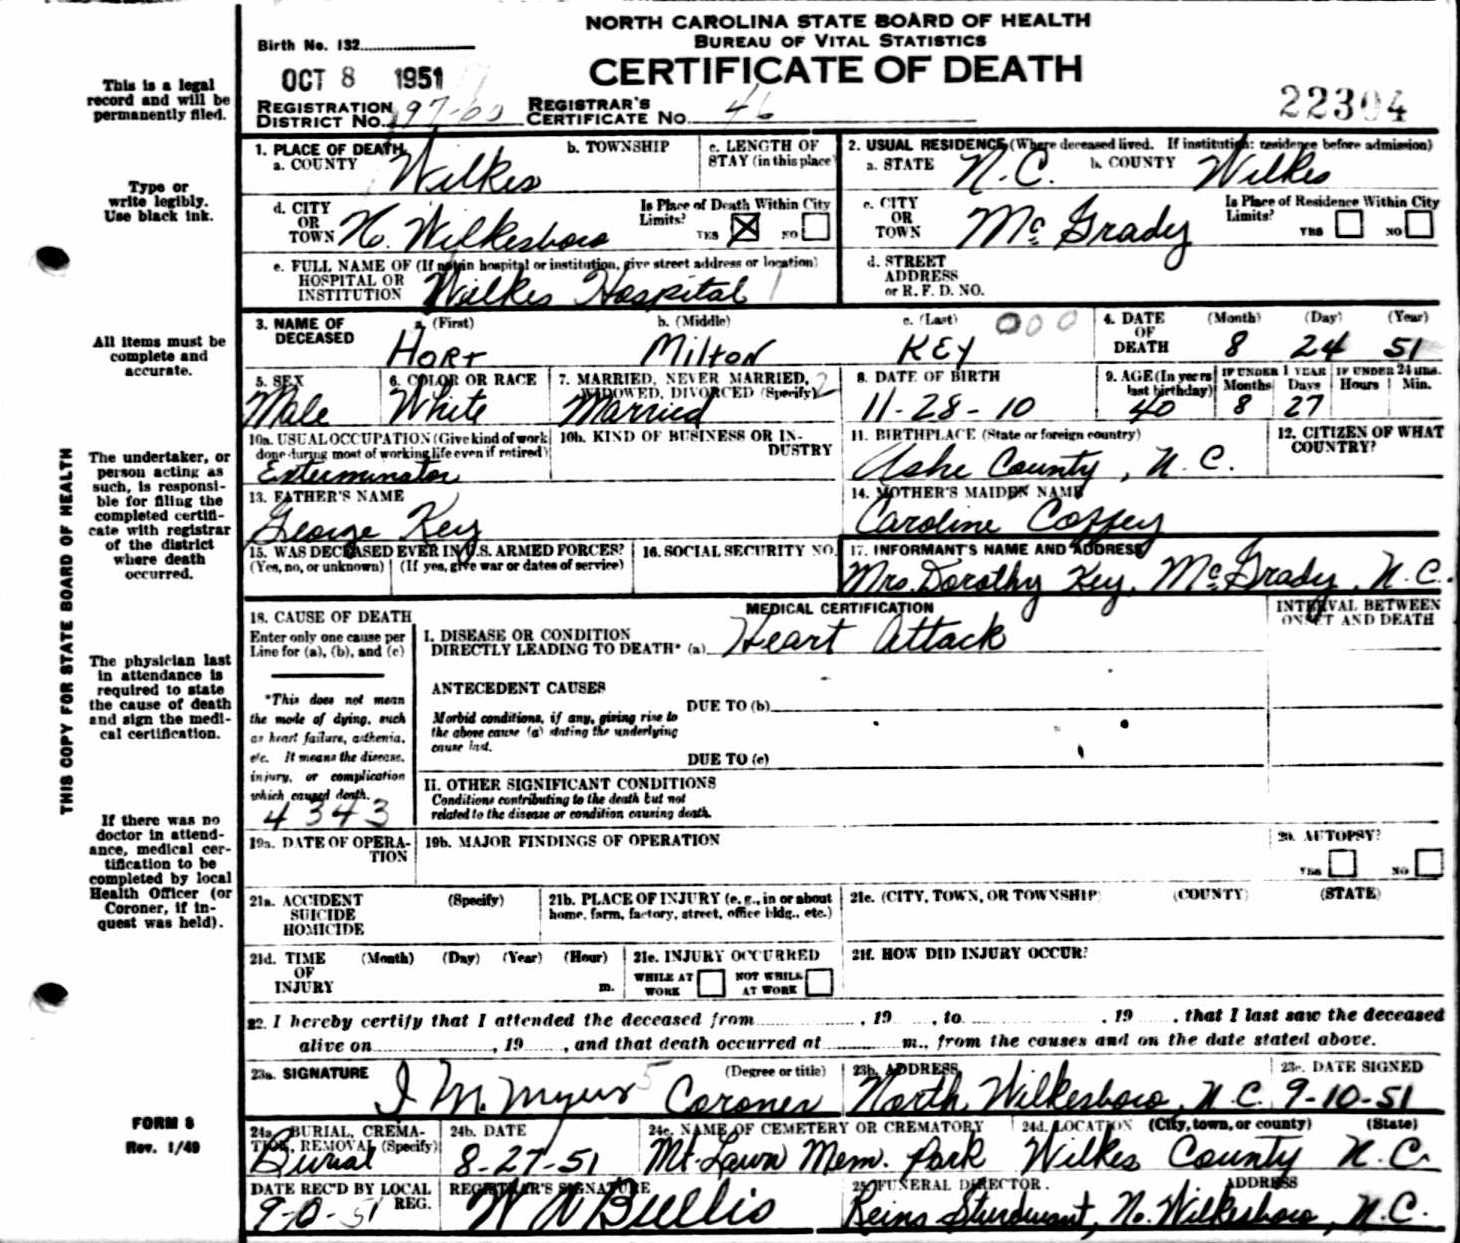 NORTH CAROLINA STATE BOARD OF HEALTH
BUREAU OF VITAL STATISTICS
CERTIFICATE OF DEATH
Birth No. 132
OCT 8 1951
REGISTRATION DISTRICT No. 97-60 REGISTRAR'S CERTIFICATE No. 46
22304
This is a legal record and will be permanently filed.
Type or write legibly. Use black ink.
All items must be complete and accurate.
The undertaker, or person acting as such, is responsible for filing the completed certificate with registrar of the district where death occurred.
The physician last in attendance is required to state the cause of death and sign the medical certification.
If there was no doctor in attendance, medical certification to be completed by local Health Officer (or Coroner, if inquest was held).
FORM 8
Rev. 1/49
THIS COPY FOR STATE BOARD OF HEALTH
1. PLACE OF DEATH
a. COUNTY Wilkes b. TOWNSHIP c. LENGTH OF STAY (in this place)
2. USUAL RESIDENCE (Where deceased lived. If institution: residence before admission)
a. STATE N.C. b. COUNTY Wilkes
d. CITY OR TOWN No. Wilkesboro Is Place of Death Within City Limits? YES NO
c. CITY OR TOWN McGrady Is Place of Residence Within City Limits? YES NO
e. FULL NAME OF (If not in hospital or institution, give street address or location) HOSPITAL OR INSTITUTION Wilkes Hospital
d. STREET ADDRESS or R. F. D. NO.
3. NAME OF DECEASED a. (First) HORT b. (Middle) Milton c. (Last) KEY 000
4. DATE OF DEATH (Month) 8 (Day) 24 (Year) 51
5. SEX Male 6. COLOR OR RACE White 7. MARRIED, NEVER MARRIED, WIDOWED, DIVORCED (Specify) 2 Married
8. DATE OF BIRTH 11-28-10 9. AGE (In years last birthday) 40 IF UNDER 1 YEAR Months 8 Days 27 IF UNDER 24 HRS. Hours Min.
10a. USUAL OCCUPATION (Give kind of work done during most of working life even if retired) Exterminator 10b. KIND OF BUSINESS OR INDUSTRY
11. BIRTHPLACE (State or foreign country) Ashe County, N.C. 12. CITIZEN OF WHAT COUNTRY?
13. FATHER'S NAME George Key 14. MOTHER'S MAIDEN NAME Caroline Coffey
15. WAS DECEASED EVER IN U.S. ARMED FORCES? (Yes, no, or unknown) (If yes, give war or dates of service) 16. SOCIAL SECURITY NO.
17. INFORMANT'S NAME AND ADDRESS Mrs. Dorothy Key, McGrady, N.C.
18. CAUSE OF DEATH Enter only one cause per Line for (a), (b), and (c)
MEDICAL CERTIFICATION
INTERVAL BETWEEN ONSET AND DEATH
I. DISEASE OR CONDITION DIRECTLY LEADING TO DEATH* (a) Heart Attack
*This does not mean the mode of dying, such as heart failure, asthenia, etc. It means the disease, injury, or complication which caused death.
4343
ANTECEDENT CAUSES
Morbid conditions, if any, giving rise to the above cause (a) stating the underlying cause last.
DUE TO (b)
DUE TO (c)
II. OTHER SIGNIFICANT CONDITIONS
Conditions contributing to the death but not related to the disease or condition causing death.
19a. DATE OF OPERATION 19b. MAJOR FINDINGS OF OPERATION 20. AUTOPSY? YES NO
21a. ACCIDENT SUICIDE HOMICIDE (Specify) 21b. PLACE OF INJURY (e. g., in or about home, farm, factory, street, office bldg., etc.) 21c. (CITY, TOWN, OR TOWNSHIP) (COUNTY) (STATE)
21d. TIME OF INJURY (Month) (Day) (Year) (Hour) m. 21e. INJURY OCCURRED WHILE AT WORK NOT WHILE AT WORK 21f. HOW DID INJURY OCCUR?
22. I hereby certify that I attended the deceased from , 19 , to , 19 , that I last saw the deceased
alive on , 19 , and that death occurred at m., from the causes and on the date stated above.
23a. SIGNATURE I M. Myers 5 (Degree or title) Coroner 23b. ADDRESS North Wilkesboro, N.C. 23c. DATE SIGNED 9-10-51
24a. BURIAL, CREMATION, REMOVAL (Specify) Burial 24b. DATE 8-27-51 24c. NAME OF CEMETERY OR CREMATORY Mt. Lawn Mem. Park 24d. LOCATION (City, town, or county) (State) Wilkes County N.C.
DATE REC'D BY LOCAL REG. REGISTRAR'S SIGNATURE W W Bullis 25. FUNERAL DIRECTOR. ADDRESS Reins Sturdivant, No. Wilkesboro, N.C.